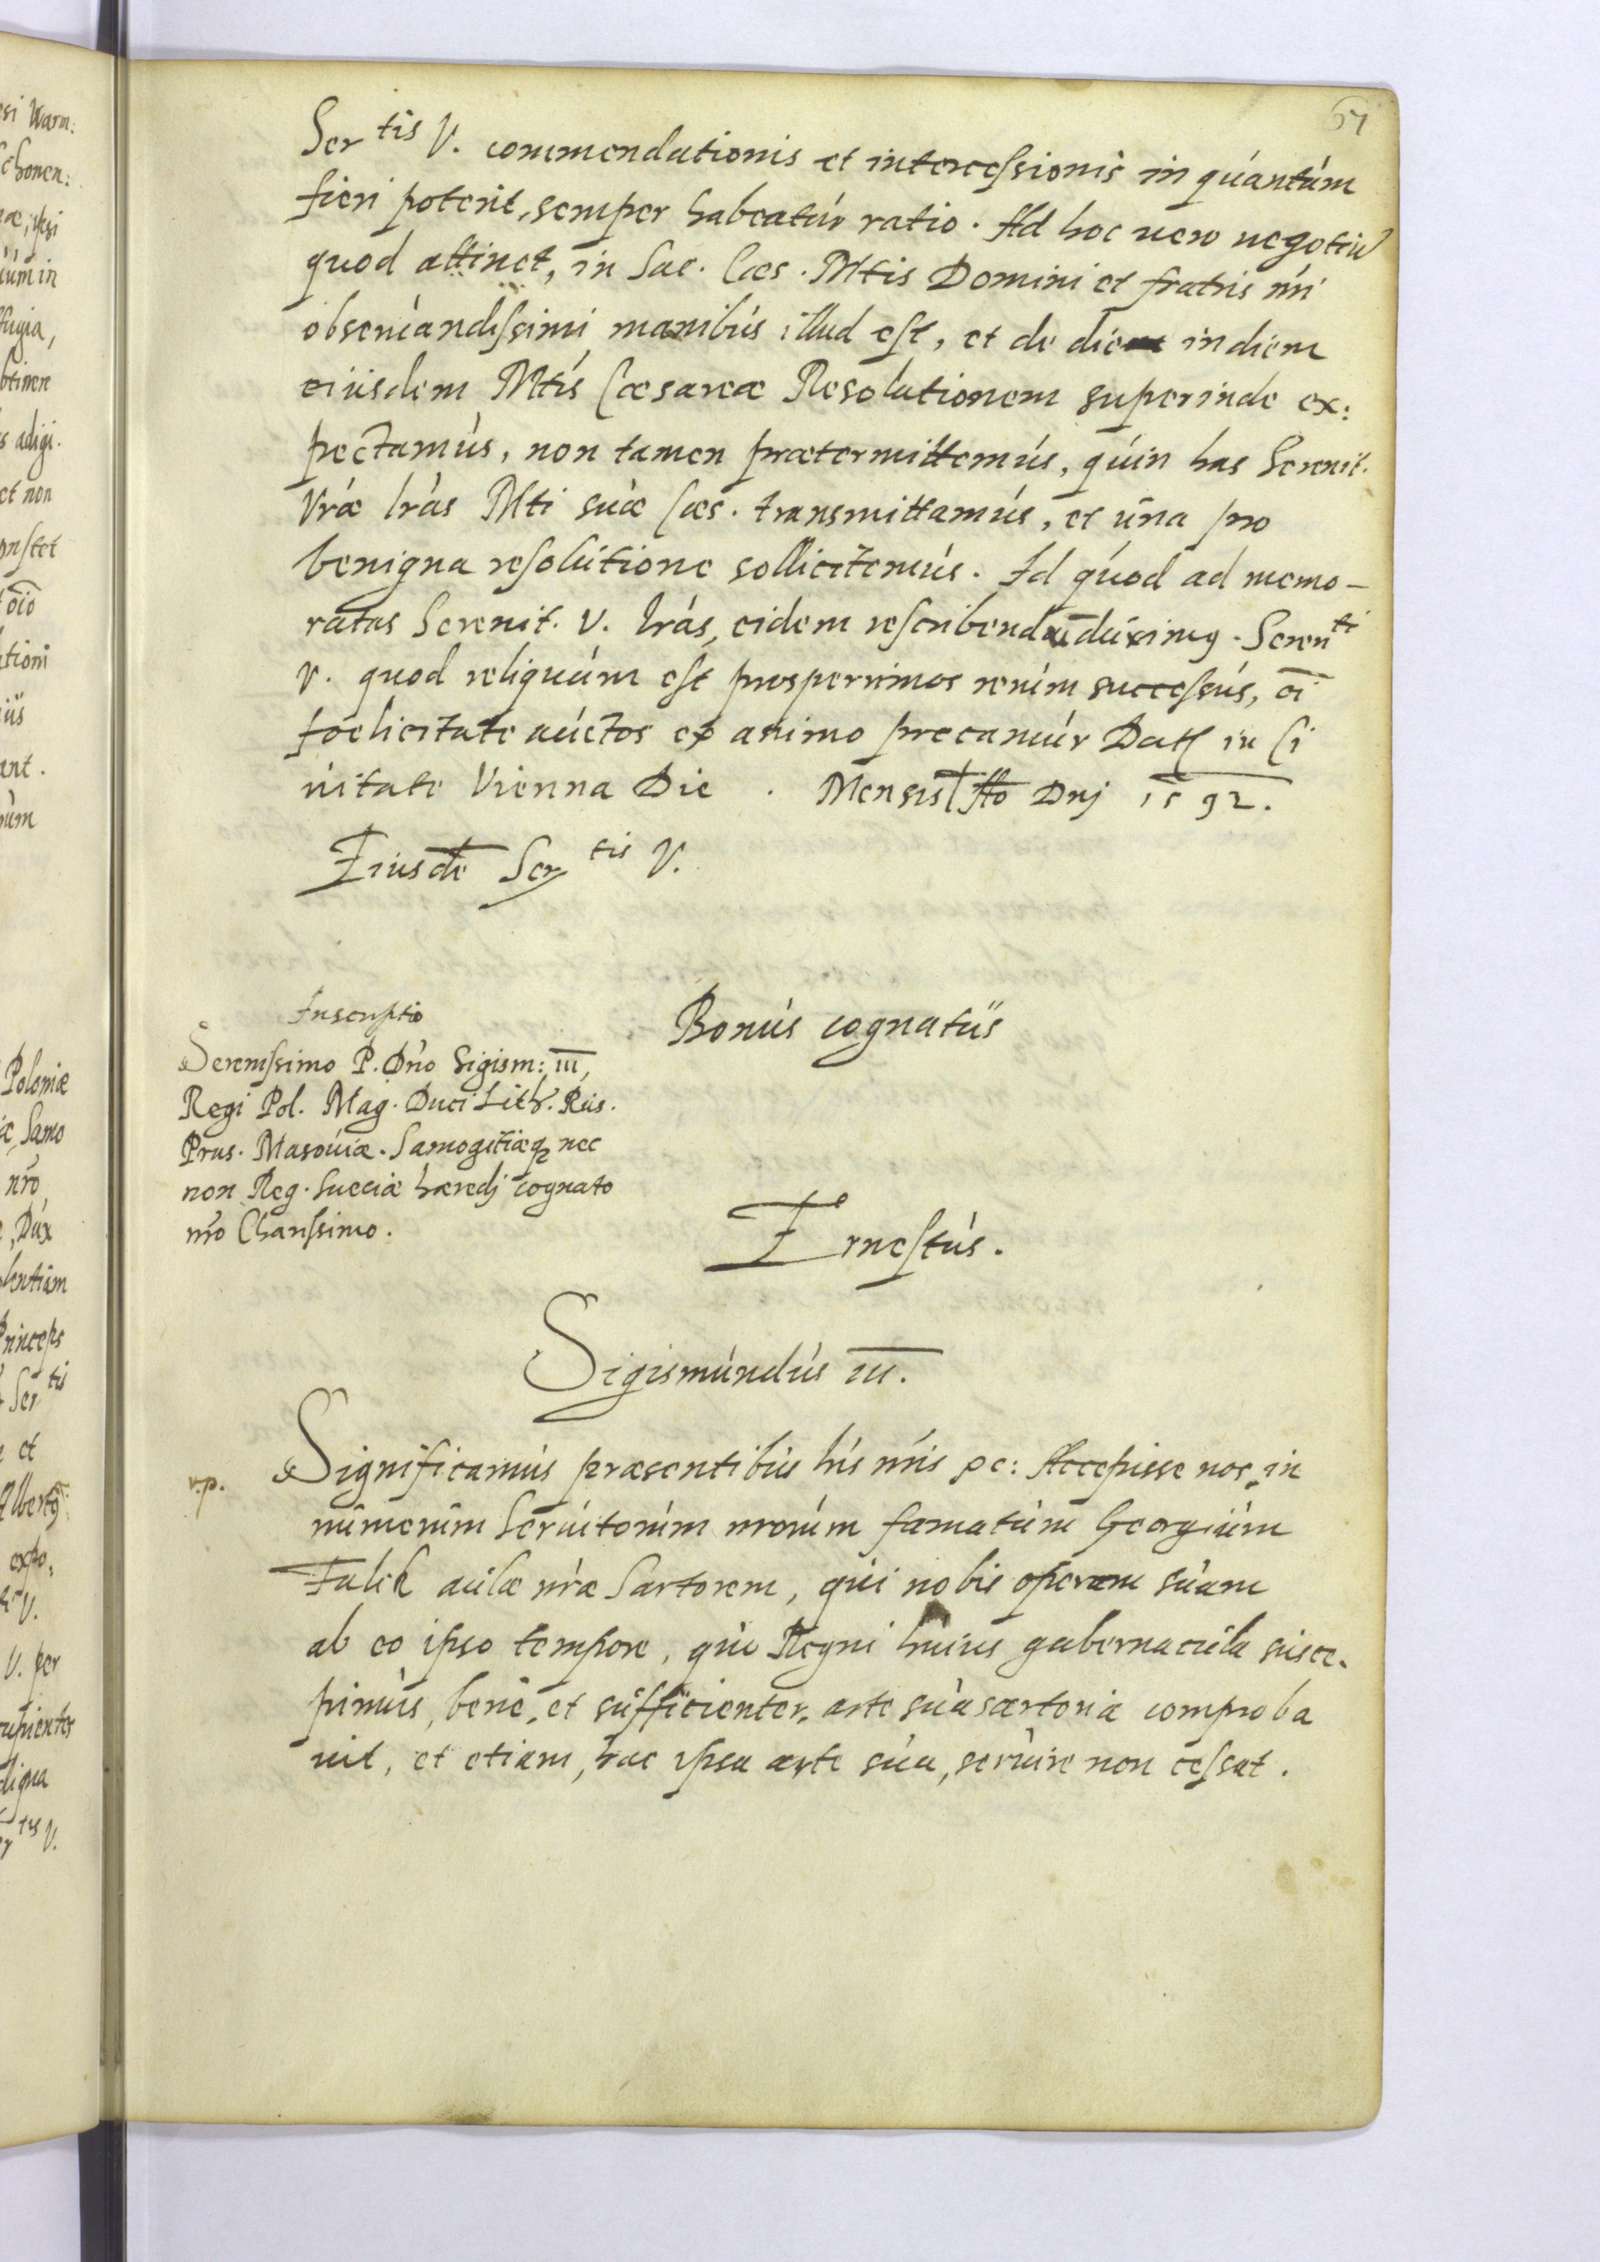 67
Ser tis V. commendationis et intercessionis in quantum
fieri poterit, semper habeatur ratio. Ad hoc vero negotiū
quod attinet, in Sac. Caes. Mtis Domini et fratris nri
observandissimi manibus illud est, et de die in diem
eiusdem Mtis Caesareae Resolutionem superinde ex:
pectamus, non tamen praetermittemus, quin has Serenit.
Vrae lras Mti suae Caes. transmittamus, et una pro
benigna resolutione sollicitemus. Id quod ad memo-
ratas Serenit. V. lras, eidem rescribendū duximus. Seren ti
V. quod reliquum est prosperrimos rerum successus, oī
foelicitate auctos ex animo precamur Dat in Ci
vitate Vienna Die . Mensis Ao Dnj 1592.
Eiusdē Ser tis V.
Bonus cognatus
Inscriptio
Serenissimo P. Dno Sigism: III,
Regi Pol. Mag. Duci Lith. Rus.
Prus. Masoviae. Samogitiaeq nec
non Reg. Sueciae haeredj cognato
nro Charissimo.
Ernestus.
Sigismundus III.
v.p.
Significamus praesentibus his nris pc: Accepisse nos, in
numerum Servitorum nrorum famatum Georgium
Falck aulae nrae Sartorem, qui nobis operam suam
ab eo ipso tempore, quo Regni huius gubernacula susce-
pimus, bene, et sufficienter, arte sua sartoria comproba
vit, et etiam, hac ipsa arte sua, servire non cessat.
esi Warm:
ium in
fugia,
btinen
s adigi.
et non
onstet
oio
ant.
Poloniae
Samo
nro,
, Dux
Princeps
Ser tis
et
Albertq
expo,
V.
V. per
cupienter
digna
tis V.